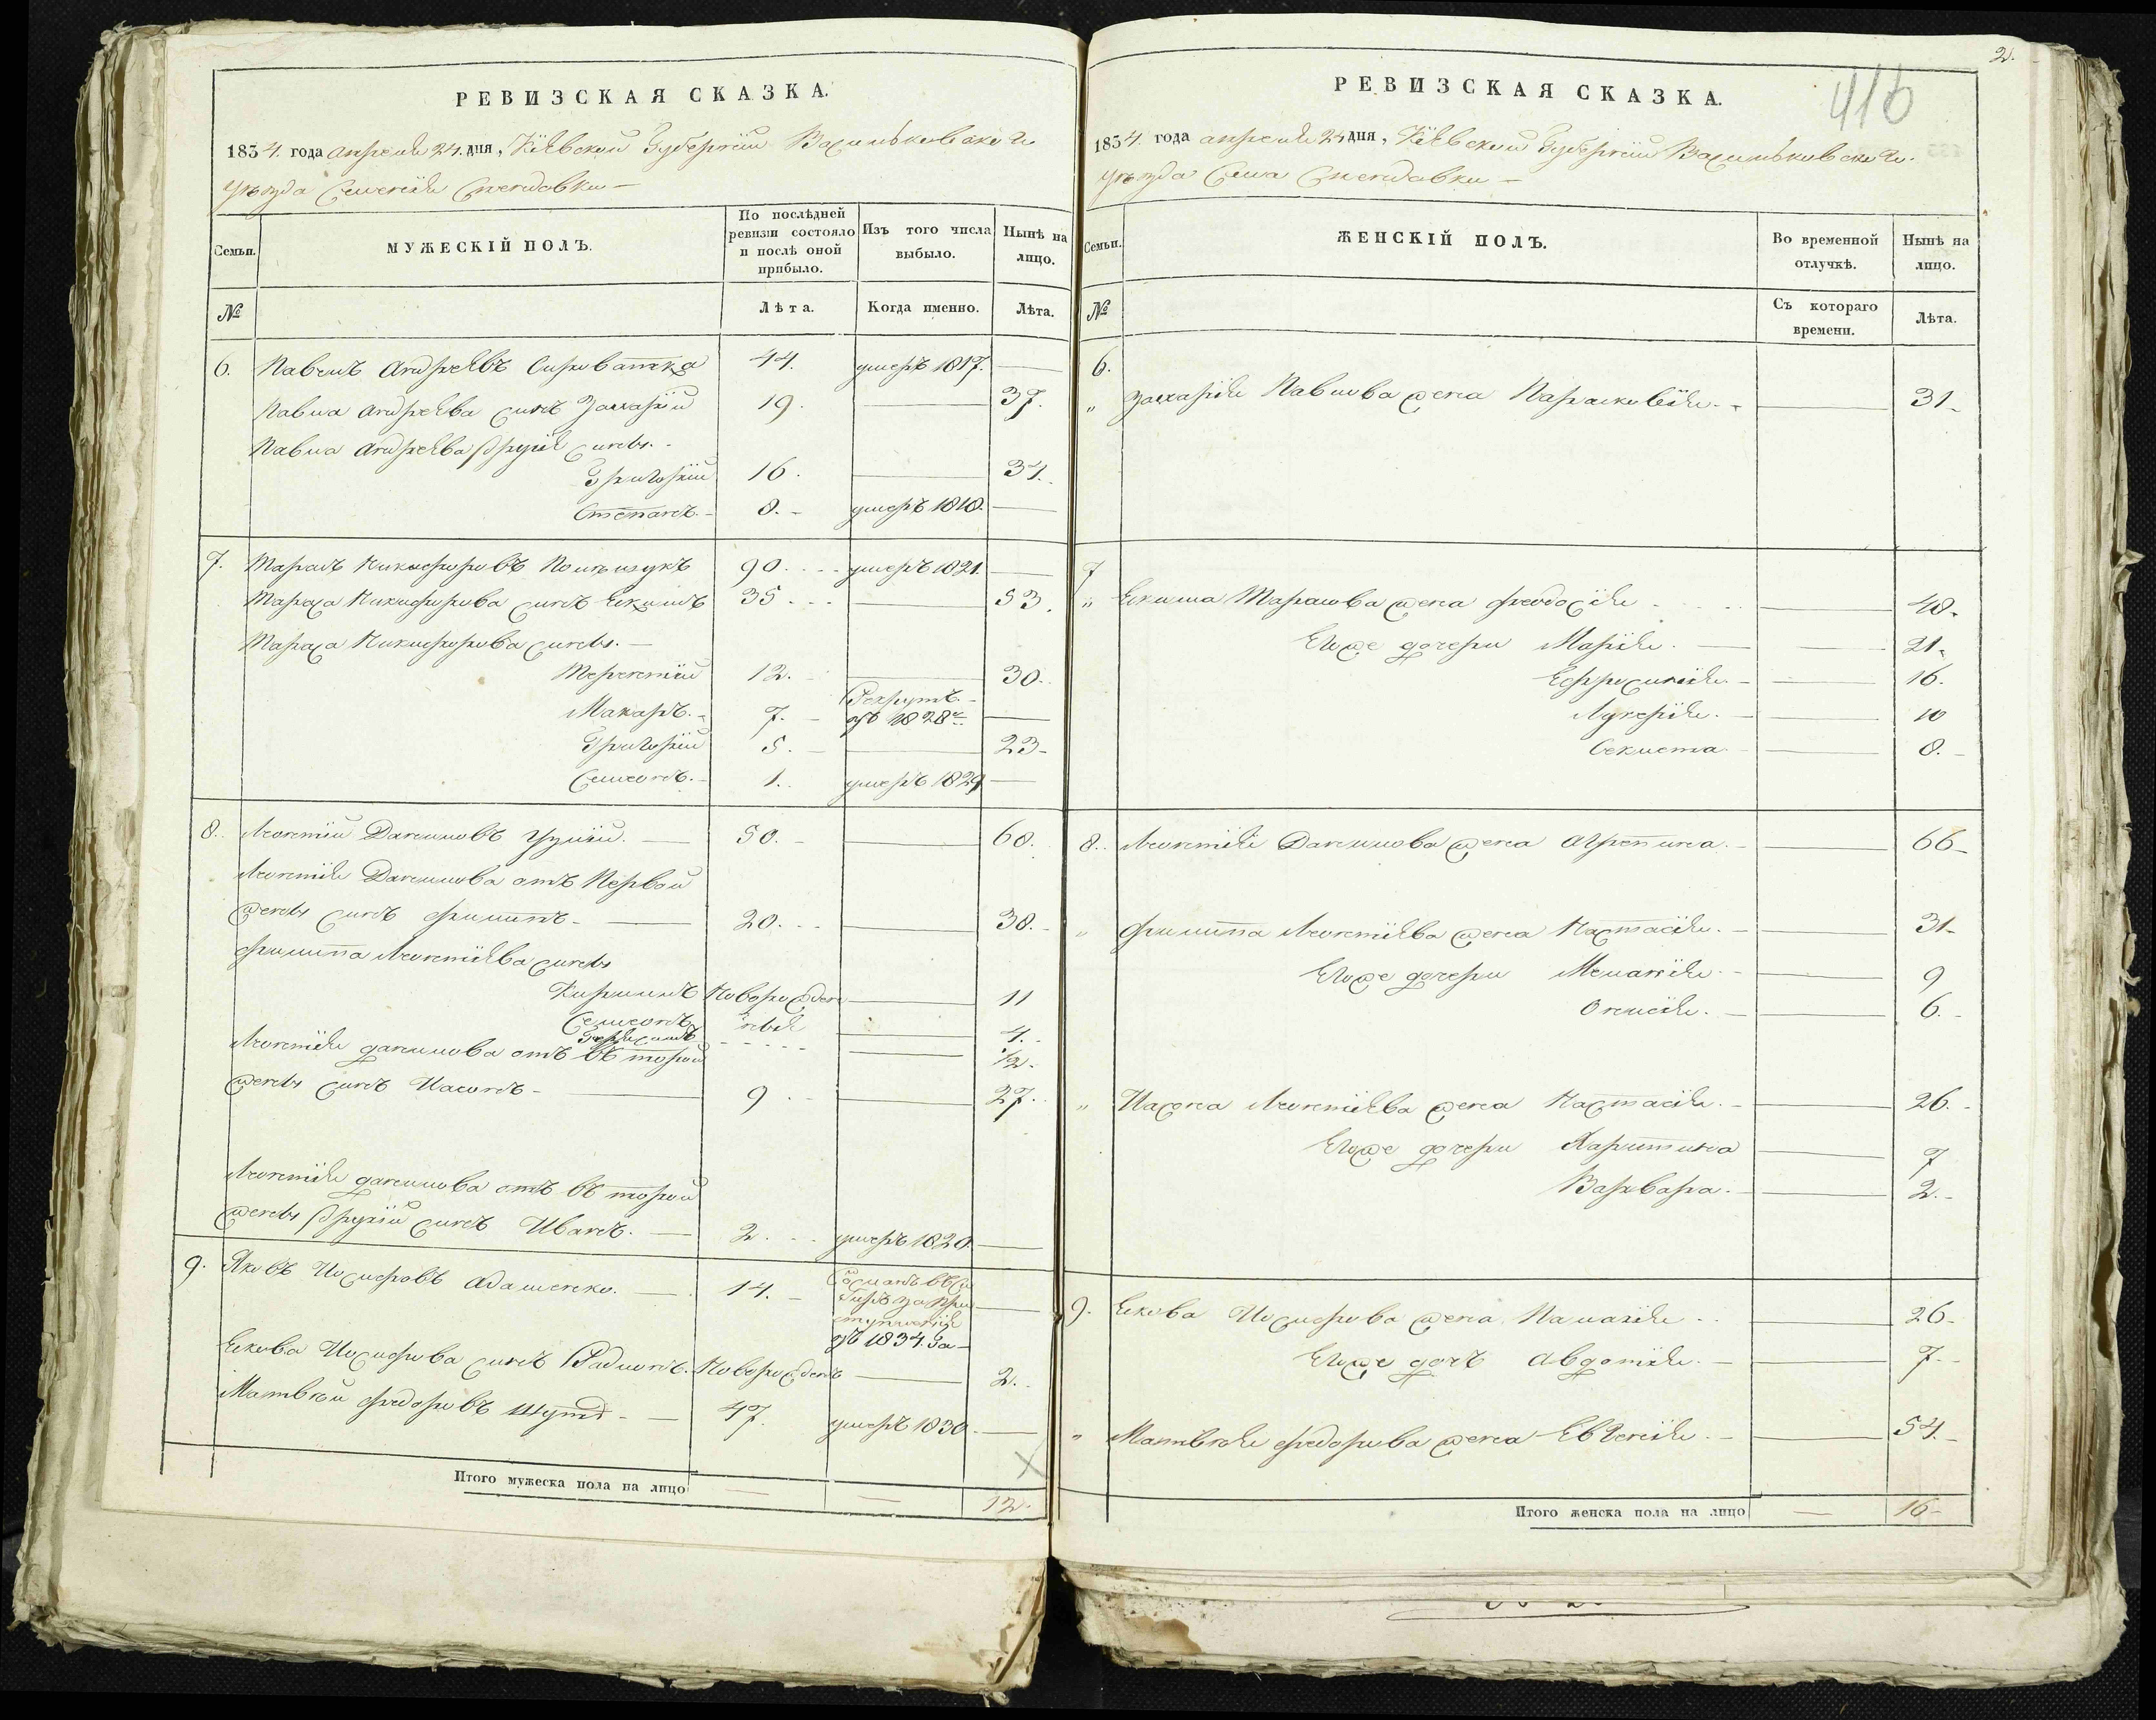 РЕВИЗСКАЯ СКАЗКА.
1834. года апреля 24. дня, Кіевской Губерніи Васильковскаго
уѣзда Селенія
Семьи.
МУЖЕСКІЙ ПОЛЪ.
По послѣдней ревизіи состояло и послѣ оной прибыло.
Изъ того числа выбыло.
Нынѣ на лицо.
№
Лѣта.
Когда именно.
Лѣта.
6. Павелъ Андреевъ Сироватка 44. умеръ 1817.
Павла Андреева сынъ Захарій 19. 37.
Павла Андреева другіе сыны.
Григорій 16. 34.
Степанъ. 8. умеръ 1818.
7. Тарасъ Никифоровъ 90. умеръ 1821.
Тараса Никифорова сынъ Екимъ 35 53.
Тараса Никифорова сыны.
Терентій 12. 30.
Макаръ. 7. Рекрутъ
въ 1828г
Григорій 5. 23
Семионъ. 1. умеръ 1829
8. Леонтій Даниловъ 50. 68.
Леонтія Данилова отъ Первой
жены сынъ Филипъ 20. 38.
Филипа Леонтіева сыны
Кирилъ Новорожден 11
Семионъ ные 4.
Герасимъ 1/2.
Леонтія данилова отъ второй
жены сынъ Иасонъ 9 27.
Леонтія данилова отъ второй
жены другій сынъ Иванъ. 2. умеръ 1820.
9. Яковъ Иосифовъ Адаменко. 14. Сосланъ въ Си
биръ за пре
ступленіе
въ 1834. Го
Екова Иосифова сынъ Радионъ. Новорожденъ 2.
Матвѣй Федоровъ Шутъ 47. умеръ 1830.
Итого мужеска пола на лицо 12.
2.
416
РЕВИЗСКАЯ СКАЗКА.
1834. года апреля 24 дня, Кіевской Губерніи Васильковскаго
уѣзда Села
Семьи.
ЖЕНСКІЙ ПОЛЪ.
Во временной отлучкѣ.
Нынѣ на лицо.
№
Съ котораго времени.
Лѣта.
6.
" Захарія Павлова жена Параскевія. 31
7
" Екима Тарасова жена Феодосія 48.
Егоже дочери Марія. 21.
Ефросинія. 16.
Лукерія. 10
Секлета 8.
8. Леонтія Данилова жена Агрепина. 66
" Филипа Леонтіева жена Настасія. 31
Егоже дочери Меланія. 9
Оленсія. 6.
" Иасона Леонтіева жена Настасія. 26.
Егоже дочери Харитина 7
Варвара. 2.
9. Екова Иосифова жена Палагія 26
Егоже дочъ Авдотія. 7.
" Матвѣя Федорова жена Евгенія. 54.
Итого женска пола на лицо 16